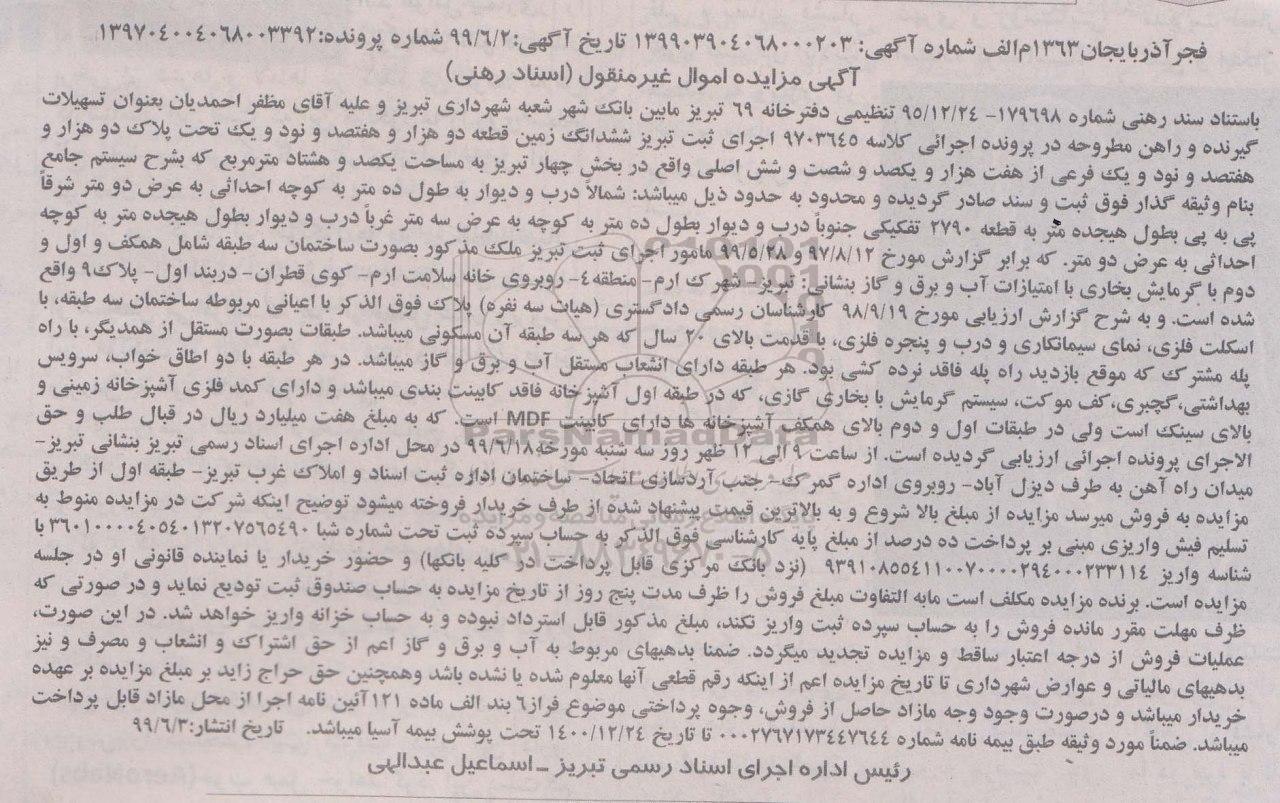 فجر آذربایجان ۱۳۶۳م‌الف شماره آگهی: ۱۳۹۹۰۳۹۰٤۰۶۸۰۰۰۲۰۳ تاریخ آگهی:۹۹/۶/۲ شماره پرونده:۱۳۹۷۰٤۰۰٤۰۶۸۰۰۳۳۹۲
آگهی مزایده اموال غیرمنقول (اسناد رهنی)
باستناد سند رهنی شماره ۱۷۹۶۹۸- ۹۵/۱۲/۲٤ تنظیمی دفترخانه ۶۹ تبریز مابین بانک شهر شعبه شهرداری تبریز و علیه آقای مظفر احمدیان بعنوان تسهیلات
گیرنده و راهن مطروحه در پرونده اجرائی کلاسه ۹۷۰۳۶٤۵ اجرای ثبت تبریز ششدانگ زمین قطعه دو هزار و هفتصد و نود و یک تحت پلاک دو هزار و
هفتصد و نود و یک فرعی از هفت هزار و یکصد و شصت و شش اصلی واقع در بخش چهار تبریز به مساحت یکصد و هشتاد مترمربع که بشرح سیستم جامع
بنام وثیقه گذار فوق ثبت و سند صادر گردیده و محدود به حدود ذیل میباشد: شمالاً درب و دیوار به طول ده متر به کوچه احداثی به عرض دو متر شرقاً
پی به پی بطول هیجده متر به قطعه ۲۷۹۰ تفکیکی جنوباً درب و دیوار بطول ده متر به کوچه به عرض سه متر غرباً درب و دیوار بطول هیجده متر به کوچه
احداثی به عرض دو متر. که برابر گزارش مورخ ۹۷/۸/۱۲ و ۹۹/۵/۲۸ مامور اجرای ثبت تبریز ملک مذکور بصورت ساختمان سه طبقه شامل همکف و اول و
دوم با گرمایش بخاری با امتیازات آب و برق و گاز بنشانی: تبریز- شهرک ارم- منطقه٤- روبروی خانه سلامت ارم- کوی قطران- دربند اول- پلاک۹ واقع
شده است. و به شرح گزارش ارزیابی مورخ ۹۸/۹/۱۹ کارشناسان رسمی دادگستری (هیات سه نفره) پلاک فوق الذکر با اعیانی مربوطه ساختمان سه طبقه، با
اسکلت فلزی، نمای سیمانکاری و درب و پنجره فلزی، با قدمت بالای ۲۰ سال که هر سه طبقه آن مسکونی میباشد. طبقات بصورت مستقل از همدیگر، با راه
پله مشترک که موقع بازدید راه پله فاقد نرده کشی بود. هر طبقه دارای انشعاب مستقل آب و برق و گاز میباشد. در هر طبقه با دو اطاق خواب، سرویس
بهداشتی،گچبری،کف موکت، سیستم گرمایش با بخاری گازی، که در طبقه اول آشپزخانه فاقد کابینت بندی میباشد و دارای کمد فلزی آشپزخانه زمینی و
بالای سینک است ولی در طبقات اول و دوم بالای همکف آشپزخانه ها دارای کابینت MDF است. که به مبلغ هفت میلیارد ریال در قبال طلب و حق
الاجرای پرونده اجرائی ارزیابی گردیده است. از ساعت ۹ الی ۱۲ ظهر روز سه شنبه مورخه۹۹/۶/۱۸ در محل اداره اجرای اسناد رسمی تبریز بنشانی تبریز-
میدان راه آهن به طرف دیزل آباد- روبروی اداره گمرک- جنب آردسازی اتحاد- ساختمان اداره ثبت اسناد و املاک غرب تبریز- طبقه اول از طریق
مزایده به فروش میرسد مزایده از مبلغ بالا شروع و به بالاترین قیمت پیشنهاد شده از طرف خریدار فروخته میشود توضیح اینکه شرکت در مزایده منوط به
تسلیم فیش واریزی مبنی بر پرداخت ده درصد از مبلغ پایه کارشناسی فوق الذکر به حساب سپرده ثبت تحت شماره شبا ۳۶۰۱۰۰۰۰٤۰۵٤۰۱۳۲۰۷۵۶۵٤۹۰ با
شناسه واریز ۹۳۹۱۰۸۵۵٤۱۱۰۰۷۰۰۰۰۲۹٤۰۰۰۲۳۳۱۱٤ (نزد بانک مرکزی قابل پرداخت در کلیه بانکها) و حضور خریدار یا نماینده قانونی او در جلسه
مزایده است. برنده مزایده مکلف است مابه التفاوت مبلغ فروش را ظرف مدت پنج روز از تاریخ مزایده به حساب صندوق ثبت تودیع نماید و در صورتی که
ظرف مهلت مقرر مانده فروش را به حساب سپرده ثبت واریز نکند، مبلغ مذکور قابل استرداد نبوده و به حساب خزانه واریز خواهد شد. در این صورت،
عملیات فروش از درجه اعتبار ساقط و مزایده تجدید میگردد. ضمنا بدهیهای مربوط به آب و برق و گاز اعم از حق اشتراک و انشعاب و مصرف و نیز
بدهیهای مالیاتی و عوارض شهرداری تا تاریخ مزایده اعم از اینکه رقم قطعی آنها معلوم شده یا نشده باشد وهمچنین حق حراج زاید بر مبلغ مزایده بر عهده
خریدار میباشد و درصورت وجود وجه مازاد حاصل از فروش، وجوه پرداختی موضوع فراز۶ بند الف ماده ۱۲۱ آئین نامه اجرا از محل مازاد قابل پرداخت
میباشد. ضمناً مورد وثیقه طبق بیمه نامه شماره ۰۰۰۲۷۶۷۱۷۳٤٤۷۶٤٤ تا تاریخ ۱٤۰۰/۱۲/۲٤ تحت پوشش بیمه آسیا میباشد. تاریخ انتشار:۹۹/۶/۳
رئیس اداره اجرای اسناد رسمی تبریز ـ اسماعیل عبدالهی
ParsNamadData